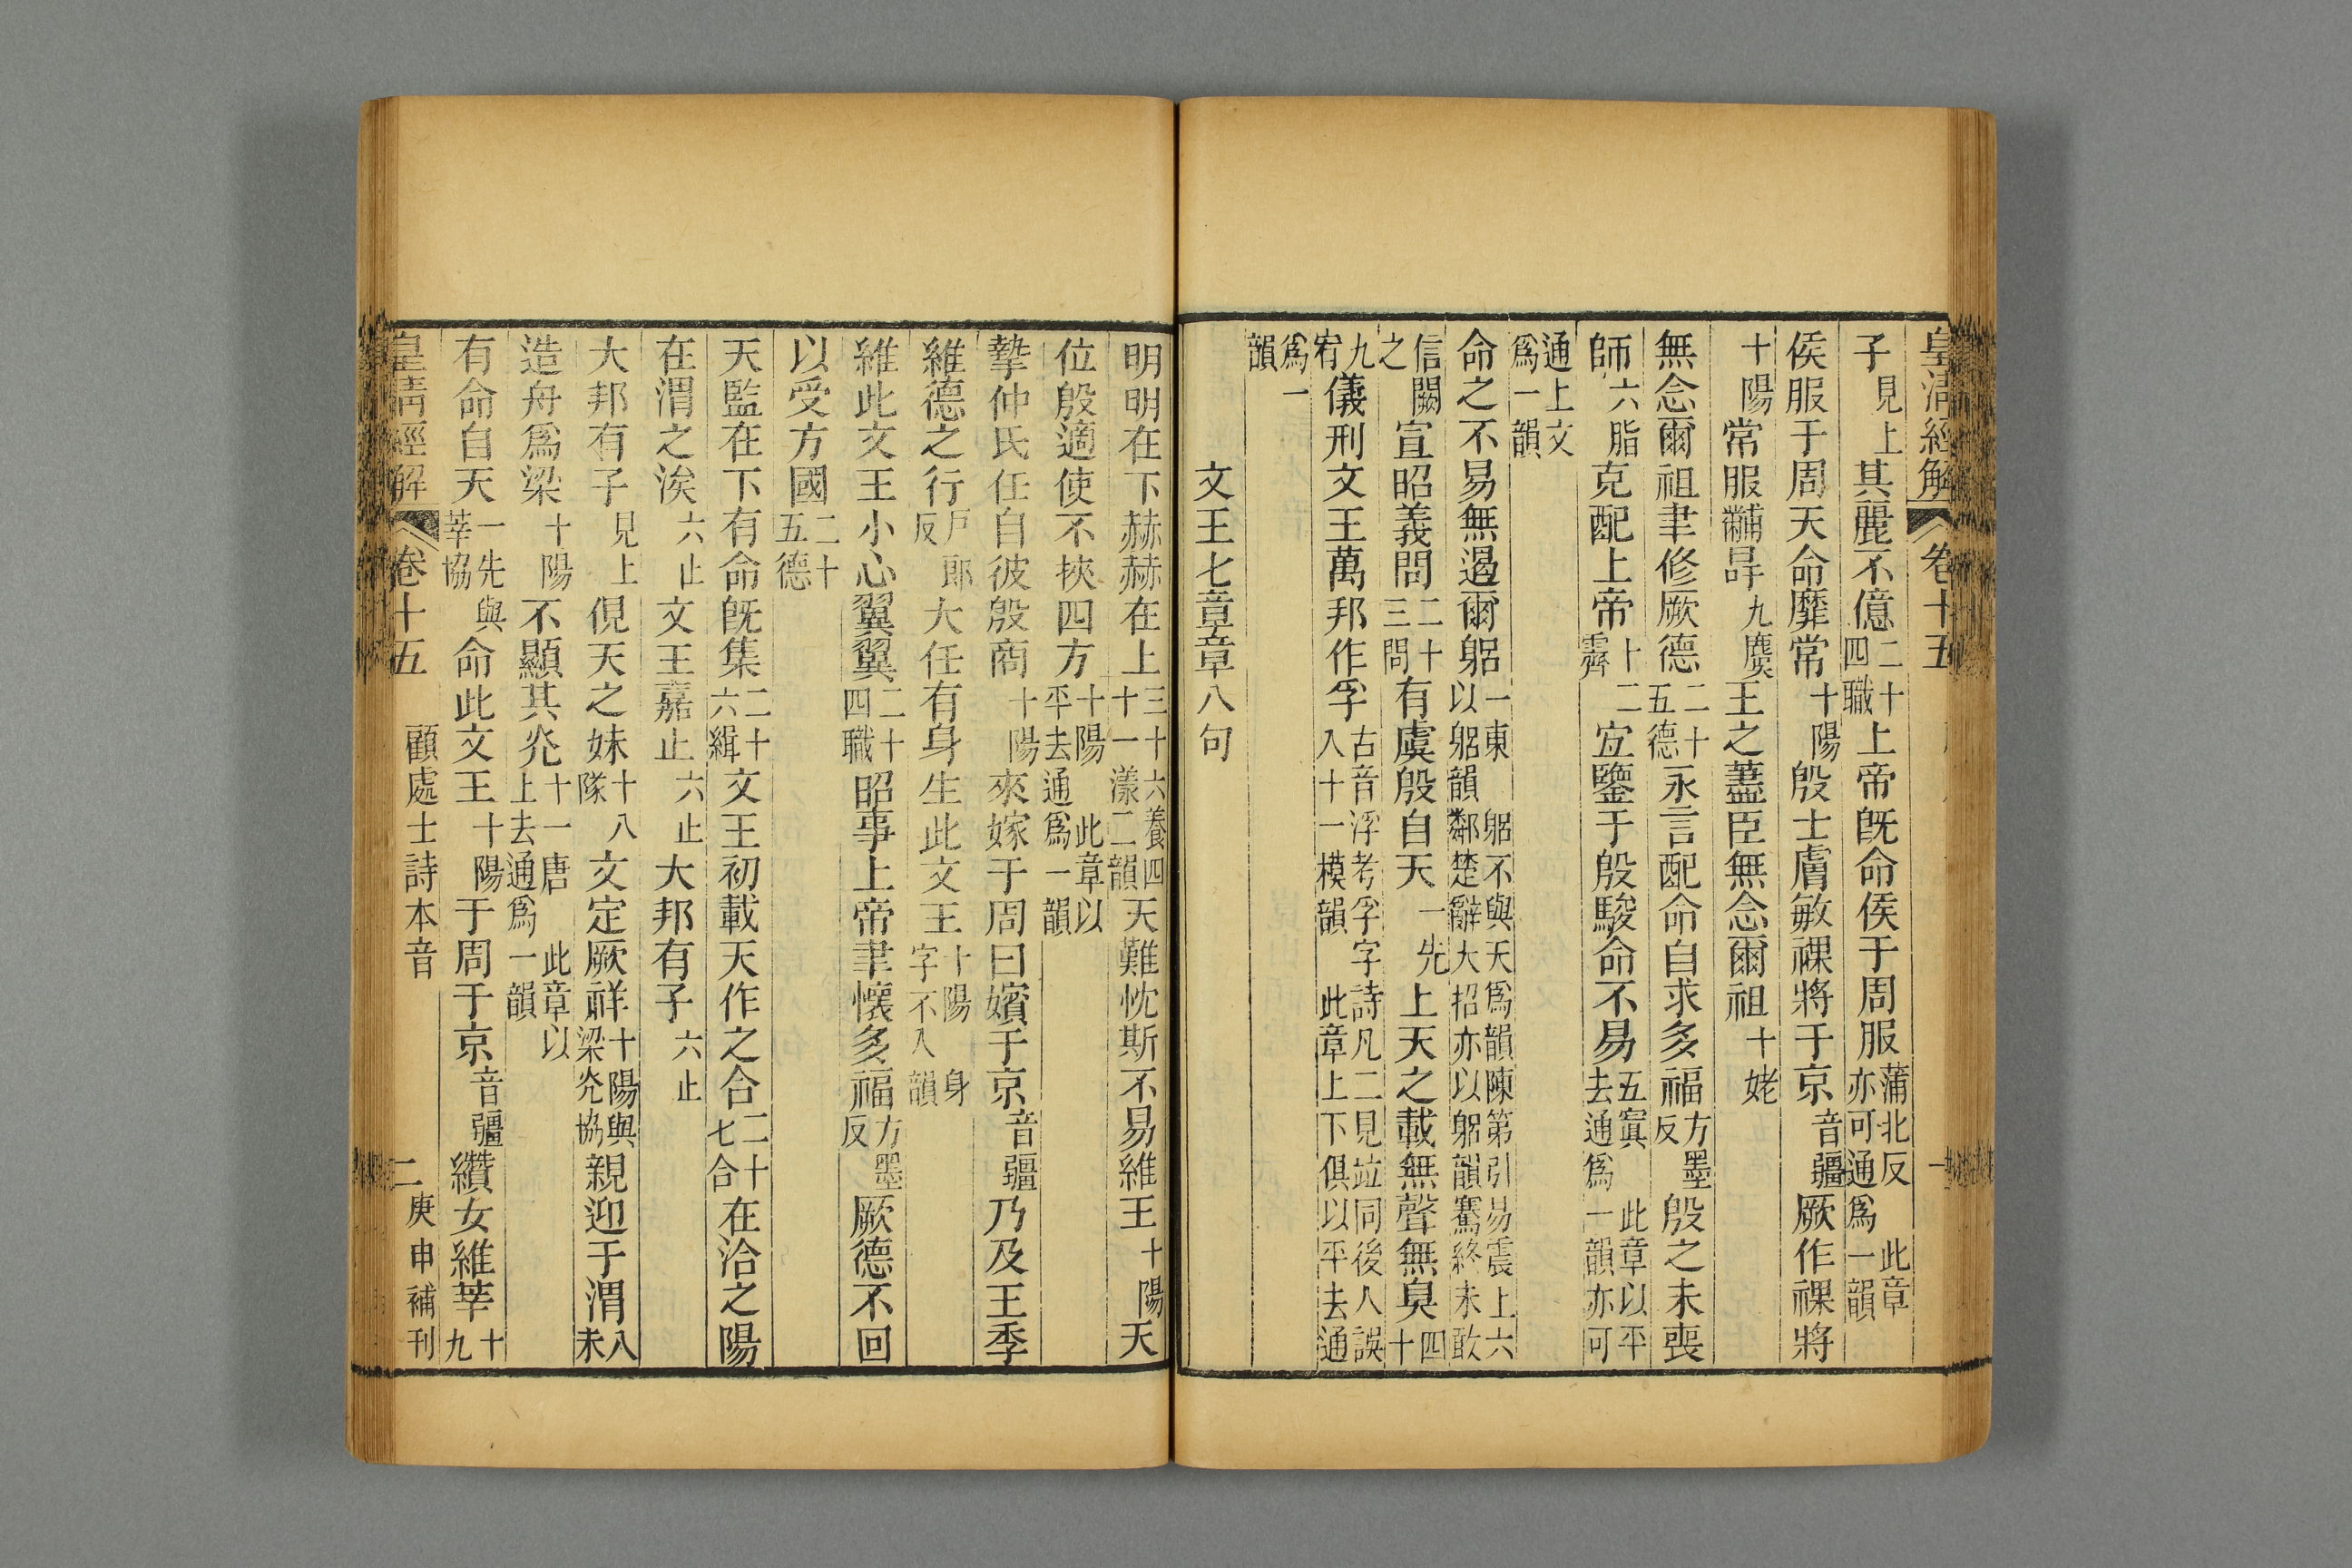 皇清經解 卷十五
子見上其麗不億二十四職上帝旣命侯于周服蒲北反亦可通爲一韻此章
侯服于周天命靡常十陽殷士膚敏祼將于京音疆厥作祼將
十陽常服黼冔九麌王之藎臣無念爾祖十姥
無念爾祖聿修厥德二十五德永言配命自求多福方墨反殷之未喪
師六脂克配上帝十二霽宜鑒于殷駿命不易五寘去通爲一韻亦可此章以平
通上文爲一韻
命之不易無遏爾躬一東以躬韻躬不與天爲韻陳第引易震上六鄰楚辭大招亦以躬韻騫終未敢
信闕之宣昭義問二十三問有虞殷自天一先上天之載無聲無臭四十
九宥儀刑文王萬邦作孚古音浮考孚字詩凡二見竝同後人誤入十一模韻此章上下俱以平去通
爲一韻
文王七章章八句
明明在下赫赫在上三十六養四十一漾二韻天難忱斯不易維王十陽天
位殷適使不挾四方十陽此章以平去通爲一韻
摯仲氏任自彼殷商十陽來嫁于周曰嬪于京音疆乃及王季
維德之行戶郎反大任有身生此文王十陽身字不入韻
維此文王小心翼翼二十四職昭事上帝聿懷多福方墨反厥德不回
以受方國二十五德
天監在下有命旣集二十六緝文王初載天作之合二十七合在洽之陽
在渭之涘六止文王嘉止六止大邦有子六止
大邦有子見上俔天之妹十八隊文定厥祥十陽與梁光協親迎于渭八未
造舟爲梁十陽不顯其光十一唐此章以上去通爲一韻
有命自天一先與莘協命此文王十陽于周于京音疆纘女維莘十九
皇清經解 卷十五 顧處士詩本音 二 庚申補刊